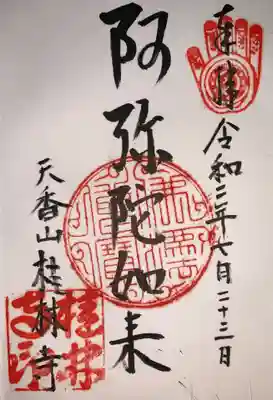 奉拝
令和二年七月二十三日
阿弥陀如来
天香山桂林寺